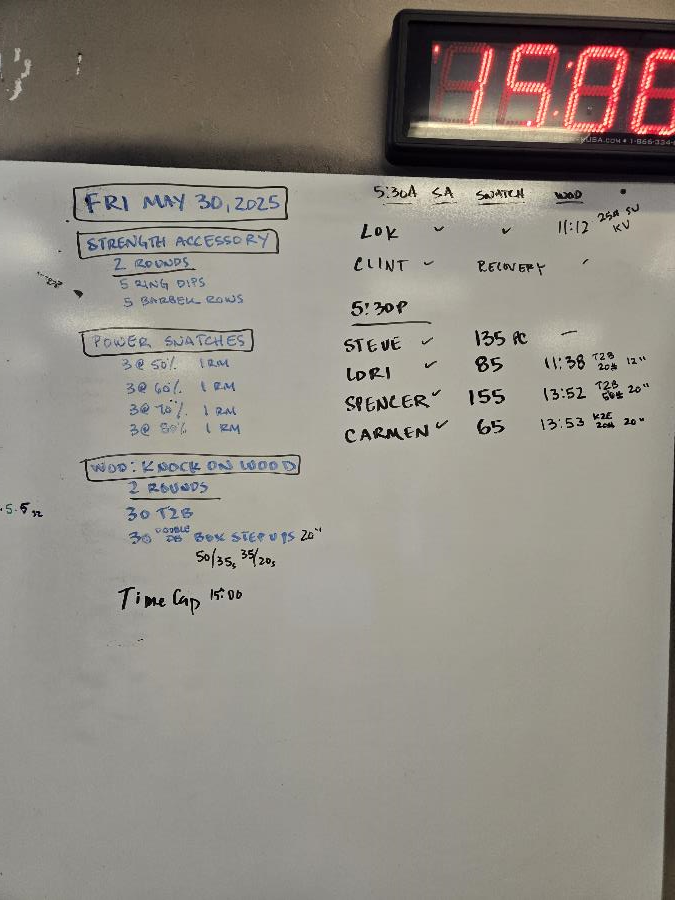 15:06
FRI MAY 30, 2025
STRENGTH ACCESSORY
2 ROUNDS
5 RING DIPS
5 BARBELL ROWS
POWER SNATCHES
3@50% 1RM
3@60% 1RM
3@70% 1RM
3@80% 1RM
WOD: KNOCK ON WOOD
2 ROUNDS
30 T2B
30 DOUBLE DB BOX STEP UPS 20"
50/35s 35/20s
Time Cap 15:00
5:30A SA SNATCH WOD
LOK ✓ ✓ 11:12 25# SU
KV
CLINT ✓ RECOVERY
5:30P
STEVE ✓ 135 PC —
LORI ✓ 85 11:38 T2B 20# 12"
SPENCER ✓ 155 13:52 T2B 50# 20"
CARMEN ✓ 65 13:53 K2E 20# 20"